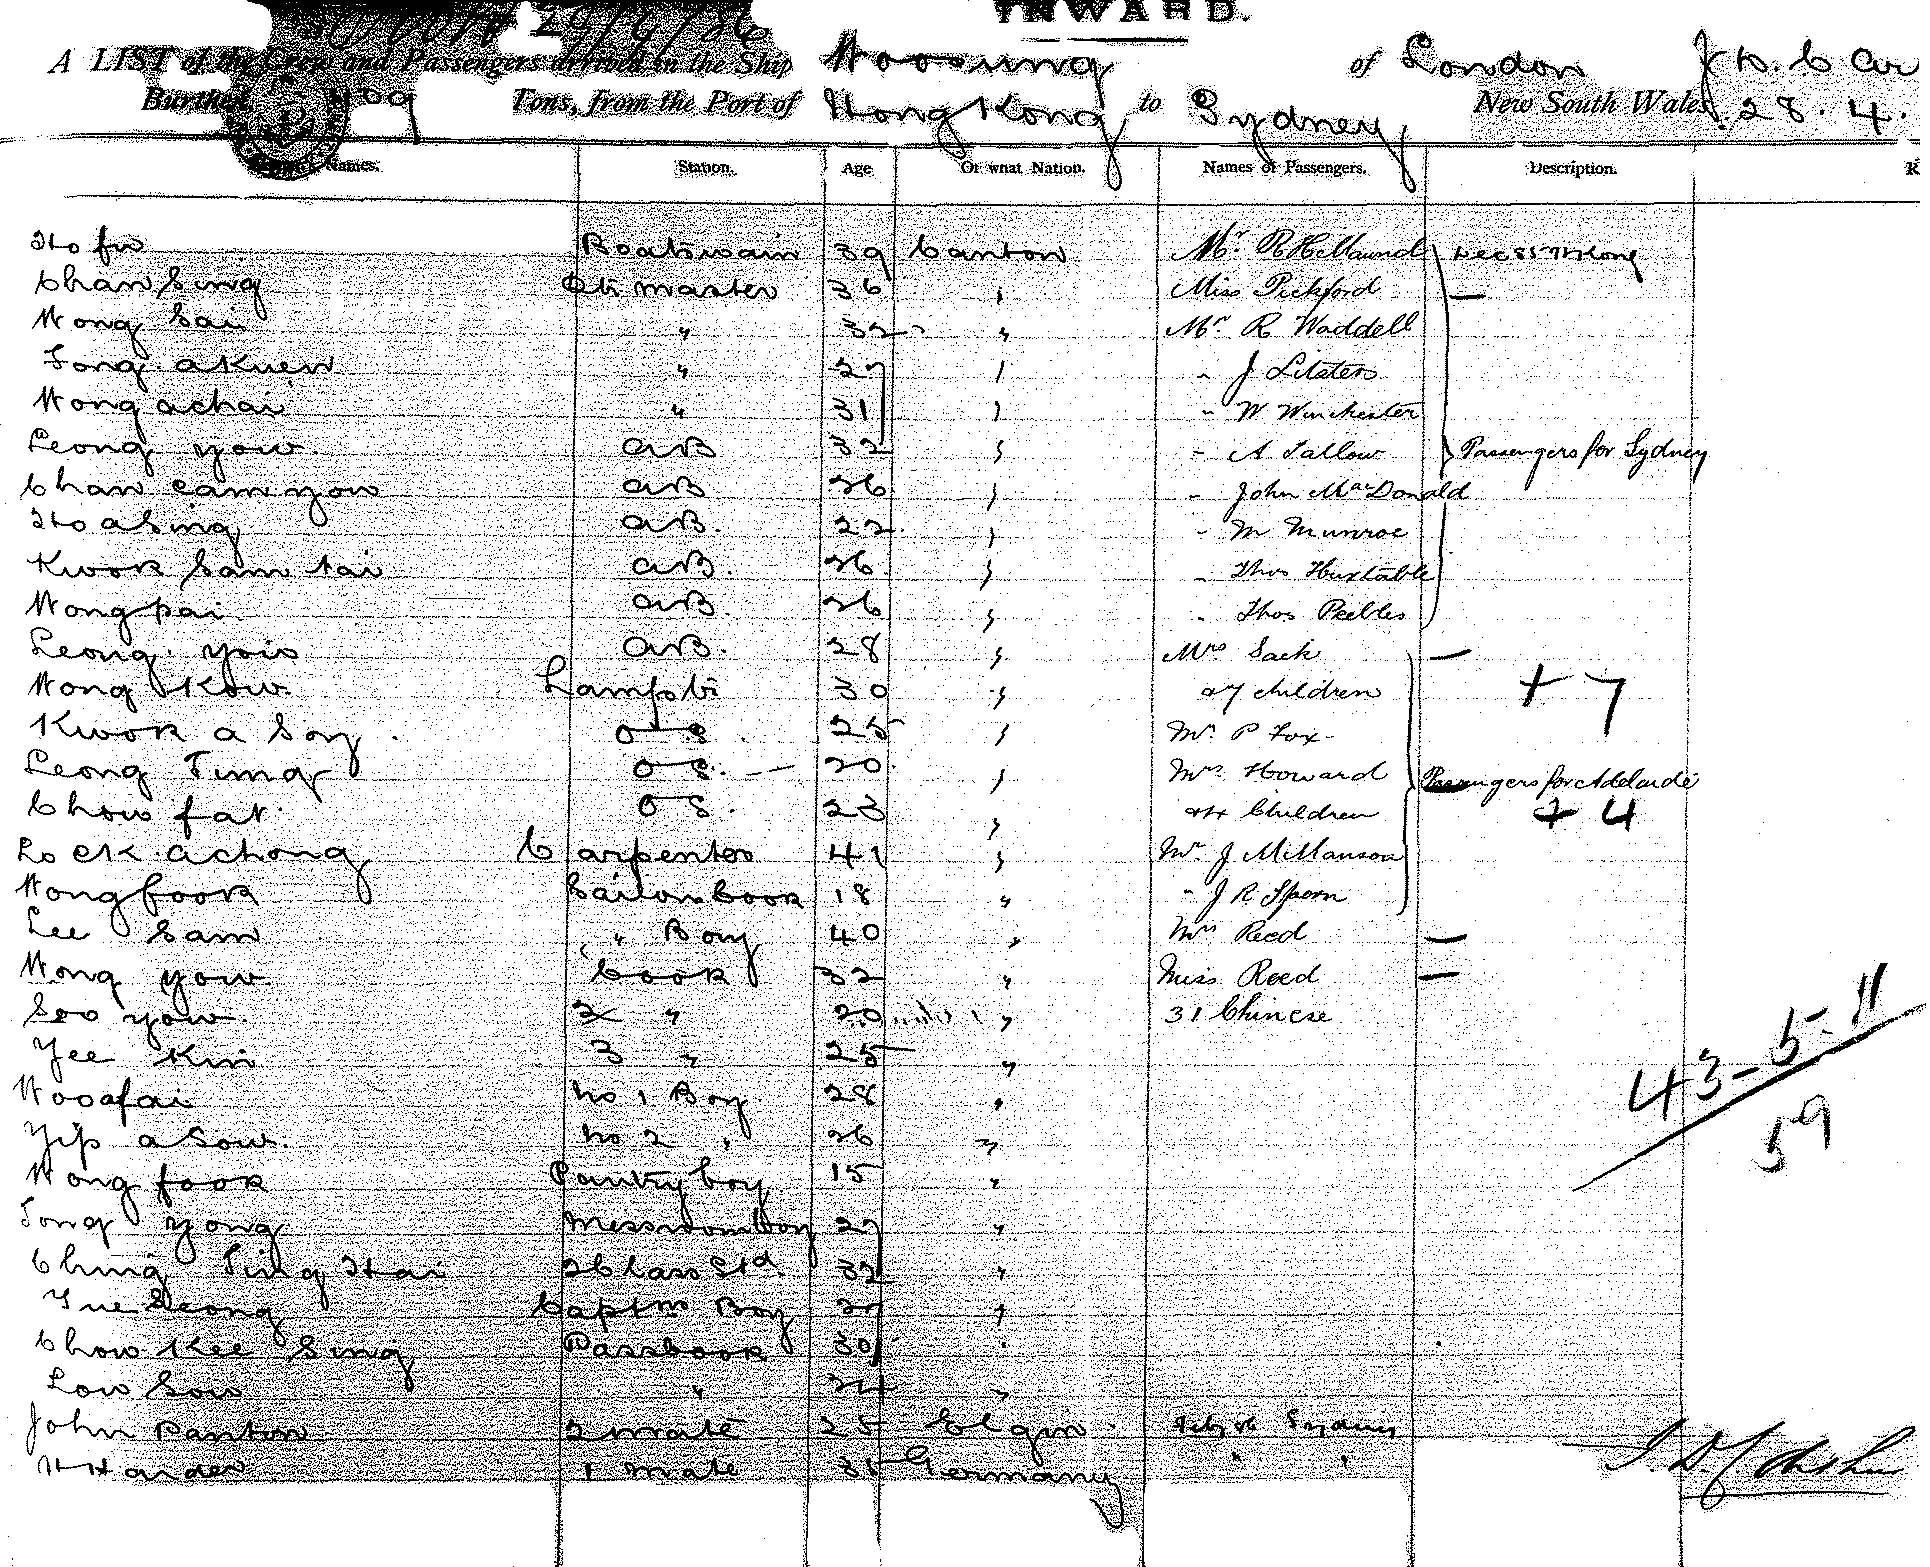 INWARD.
29/4/86
A LIST of the Crew and Passengers arrived in the Ship Woosung of London
Burthen 1109 Tons, from the Port of Hong Kong to Sydney, New South Wales, 28.4.
Names. Station. Age Of what Nation. Names of Passengers. Description.
Ho fu Boatswain 39 Canton Mr. R Hellaund
Chan Sing Qtr master 36 " Miss Pickford —
Wong Sai " 32 " Mr R Waddell
Tong akuen " 27 " " J Litster
Wong achai " 31 " " W Winchester
Leong yow AB 32 " " A Tallow Passengers for Sydney
Chan cam yow AB 26 " " John MacDonald
Ho a Sing AB. 22 " " M Munroe
Kwok Sam tai AB. 26 " " Thos Huxtable
Wong pai AB. 26 " " Thos Peebles
Leong yois AB. 28 " Mrs Sack —
Wong Kow Lamptr 30 " & 7 children + 7
Kwok a Soy OS. 25 " Mr. P Fox
Leong Timg OS. — 20 " Mrs Howard Passengers for Adelaide
Chow fat OS. 23 " & 4 Children + 4
Lo ck achong Carpenter 41 " Mr J McManson
Wong fook Sailors Cook 18 " " J R Sporn
Lee Sam " Boy 40 " Mrs Reed —
Wong yow Cook 32 " Miss Reed —
Soo yow 2 " 20 " 31 Chinese
Yee Kin 3 " 25 "
Woo a fai No 1 Boy 28 "
Yip a Sow. No 2 " 26 "
Wong fook Pantry boy 15 "
Tong yong Messroom boy 27 "
Ching Ting Hai 2 Class Std. 32 "
Yue Seong Captns Boy 27 "
Chow Kee Sing Passcook 30 "
Low Sow " 24 "
John Panton 2 mate 25 Elgin Sydney
H Harder 1 mate 31 Germany " "
43 - 5 - 11
59